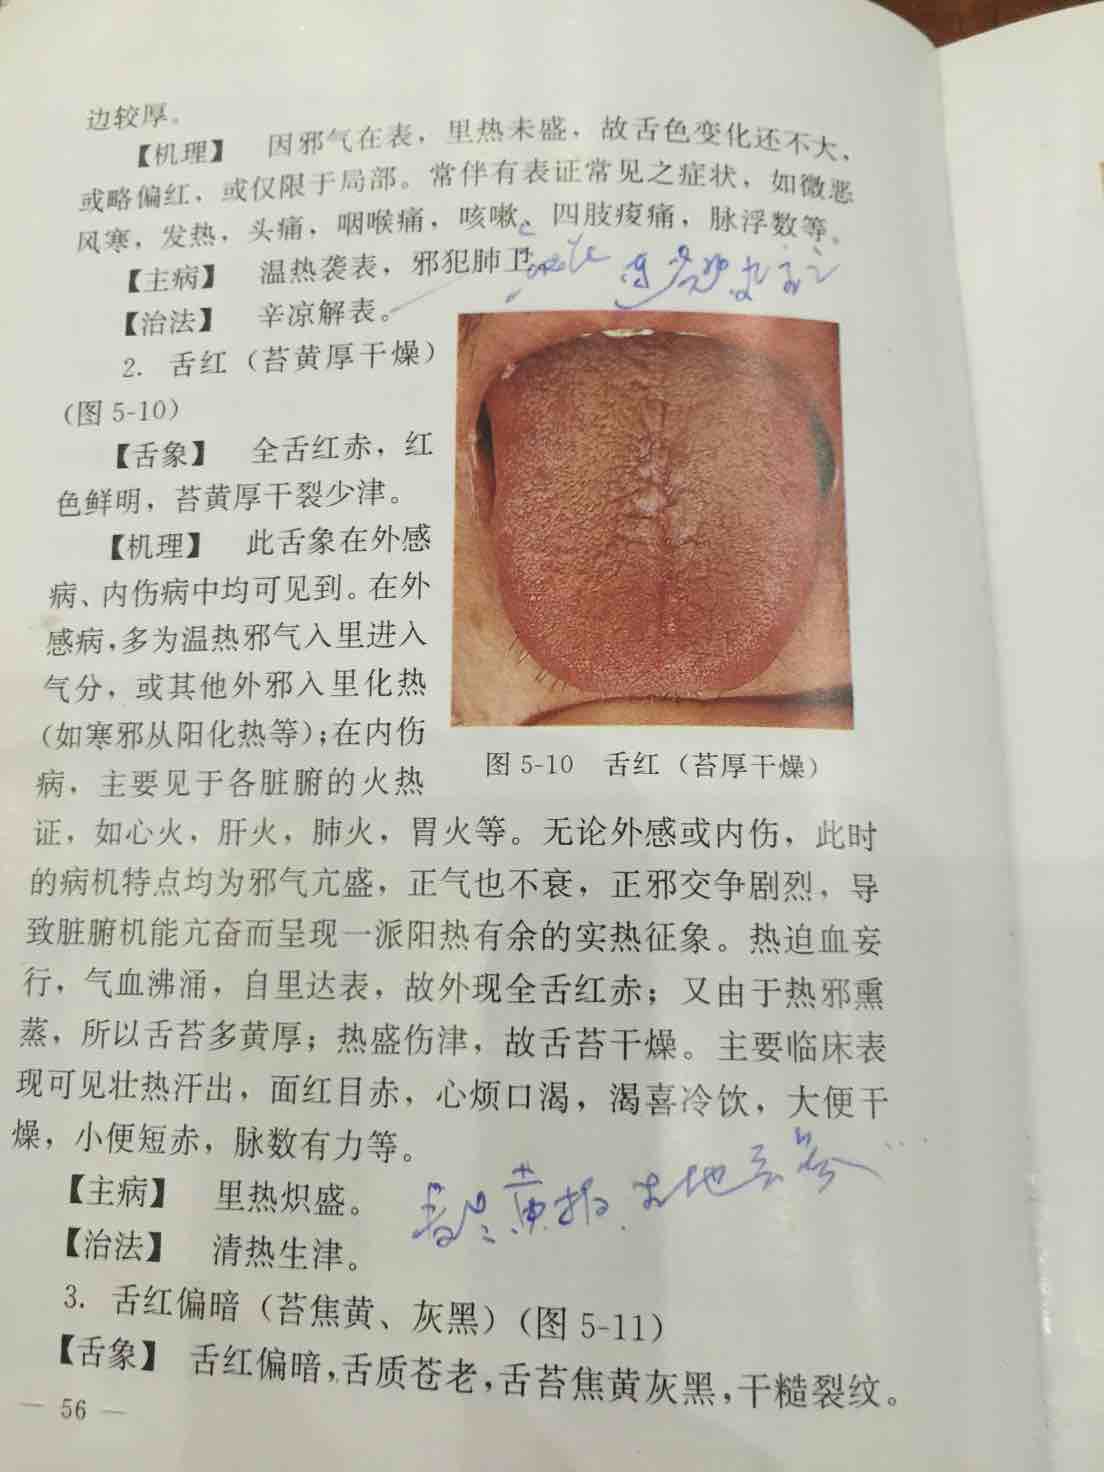 边较厚。
【机理】 因邪气在表，里热未盛，故舌色变化还不大，
或略偏红，或仅限于局部。常伴有表证常见之症状，如微恶
风寒，发热，头痛，咽喉痛，咳嗽，四肢痠痛，脉浮数等。
【主病】 温热袭表，邪犯肺卫。
【治法】 辛凉解表。
2. 舌红（苔黄厚干燥）
（图 5-10）
【舌象】 全舌红赤，红
色鲜明，苔黄厚干裂少津。
【机理】 此舌象在外感
病、内伤病中均可见到。在外
感病，多为温热邪气入里进入
气分，或其他外邪入里化热
（如寒邪从阳化热等）；在内伤
病，主要见于各脏腑的火热
证，如心火，肝火，肺火，胃火等。无论外感或内伤，此时
的病机特点均为邪气亢盛，正气也不衰，正邪交争剧烈，导
致脏腑机能亢奋而呈现一派阳热有余的实热征象。热迫血妄
行，气血沸涌，自里达表，故外现全舌红赤；又由于热邪熏
蒸，所以舌苔多黄厚；热盛伤津，故舌苔干燥。主要临床表
现可见壮热汗出，面红目赤，心烦口渴，渴喜冷饮，大便干
燥，小便短赤，脉数有力等。
图 5-10 舌红（苔厚干燥）
【主病】 里热炽盛。
【治法】 清热生津。
3. 舌红偏暗（苔焦黄、灰黑）（图 5-11）
【舌象】 舌红偏暗，舌质苍老，舌苔焦黄灰黑，干糙裂纹。
— 56 —